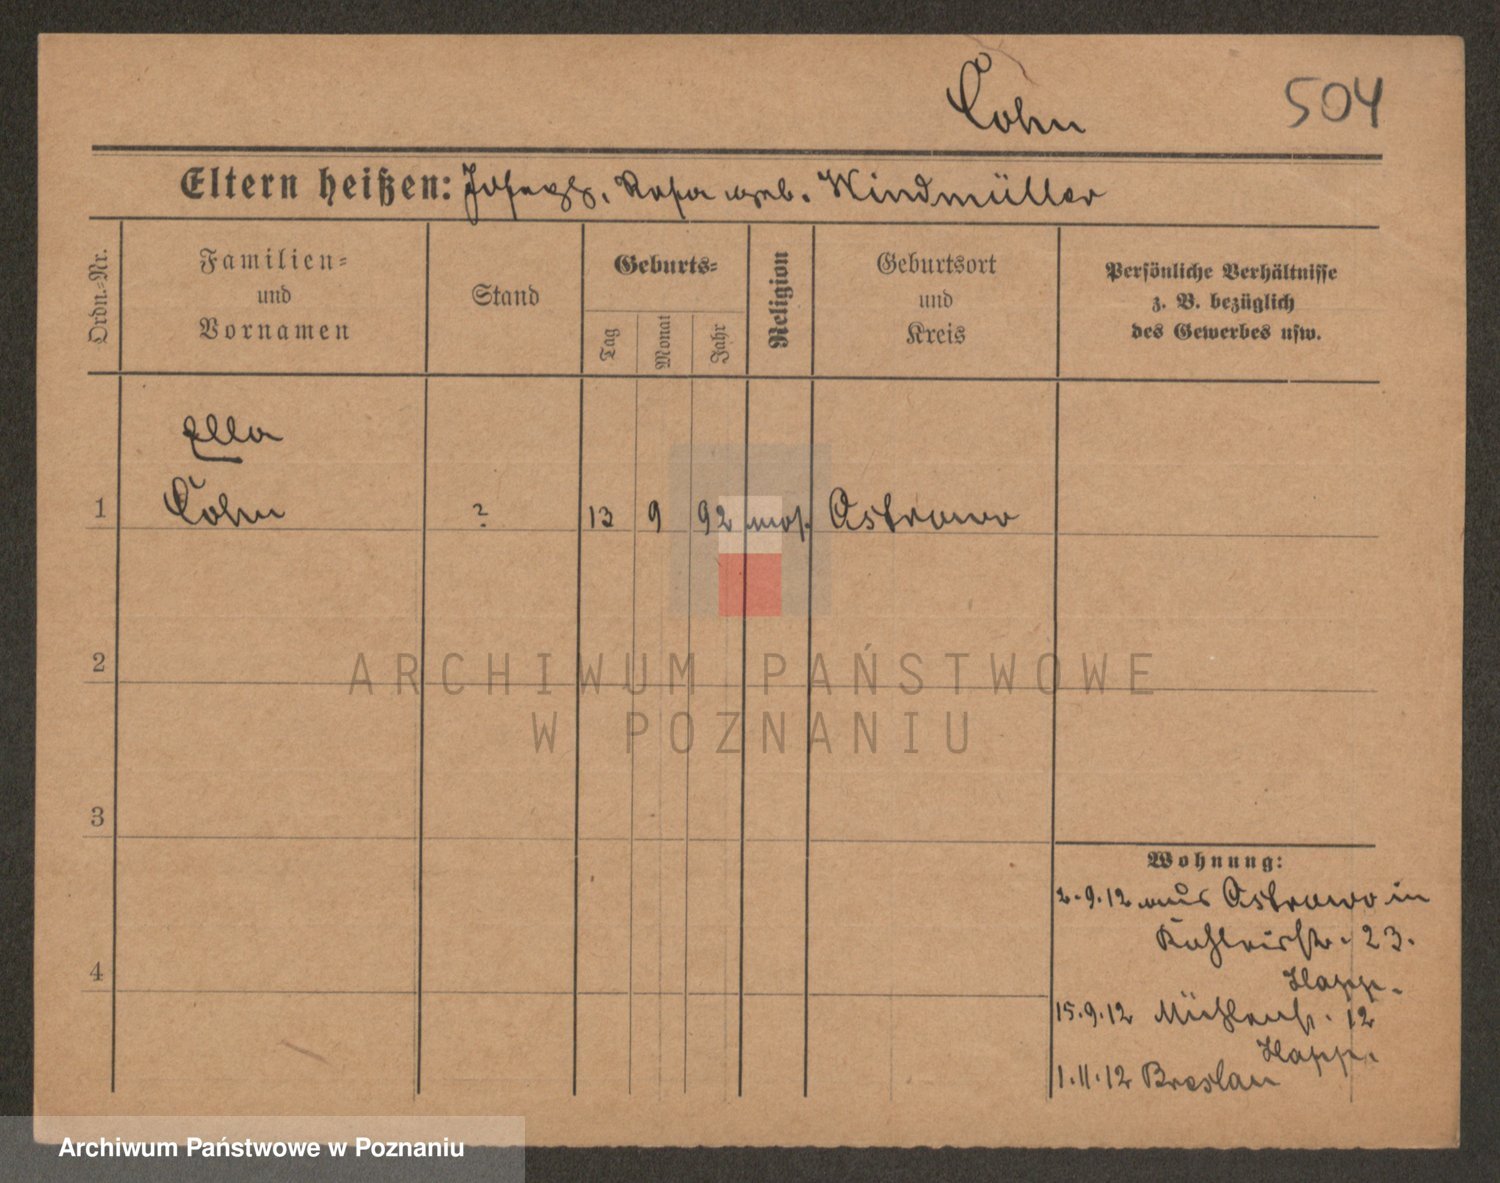 Cohn
504
Eltern heißen: Joseph, Rosa geb. Windmüller
Ordn.-Nr.
Familien-
und
Vornamen
Stand
Geburts-
Tag
Monat
Jahr
Religion
Geburtsort
und
Kreis
Persönliche Verhältnisse
z. B. bezüglich
des Gewerbes usw.
Ella
1 Cohn ? 13 9 92 mos. Ostrowo
2
3
4
Wohnung:
2.9.12 aus Ostrowo in
23.
15.9.12 Mühlenstr. 12
1.11.12 Breslau
ARCHIWUM PAŃSTWOWE
W POZNANIU
Archiwum Państwowe w Poznaniu